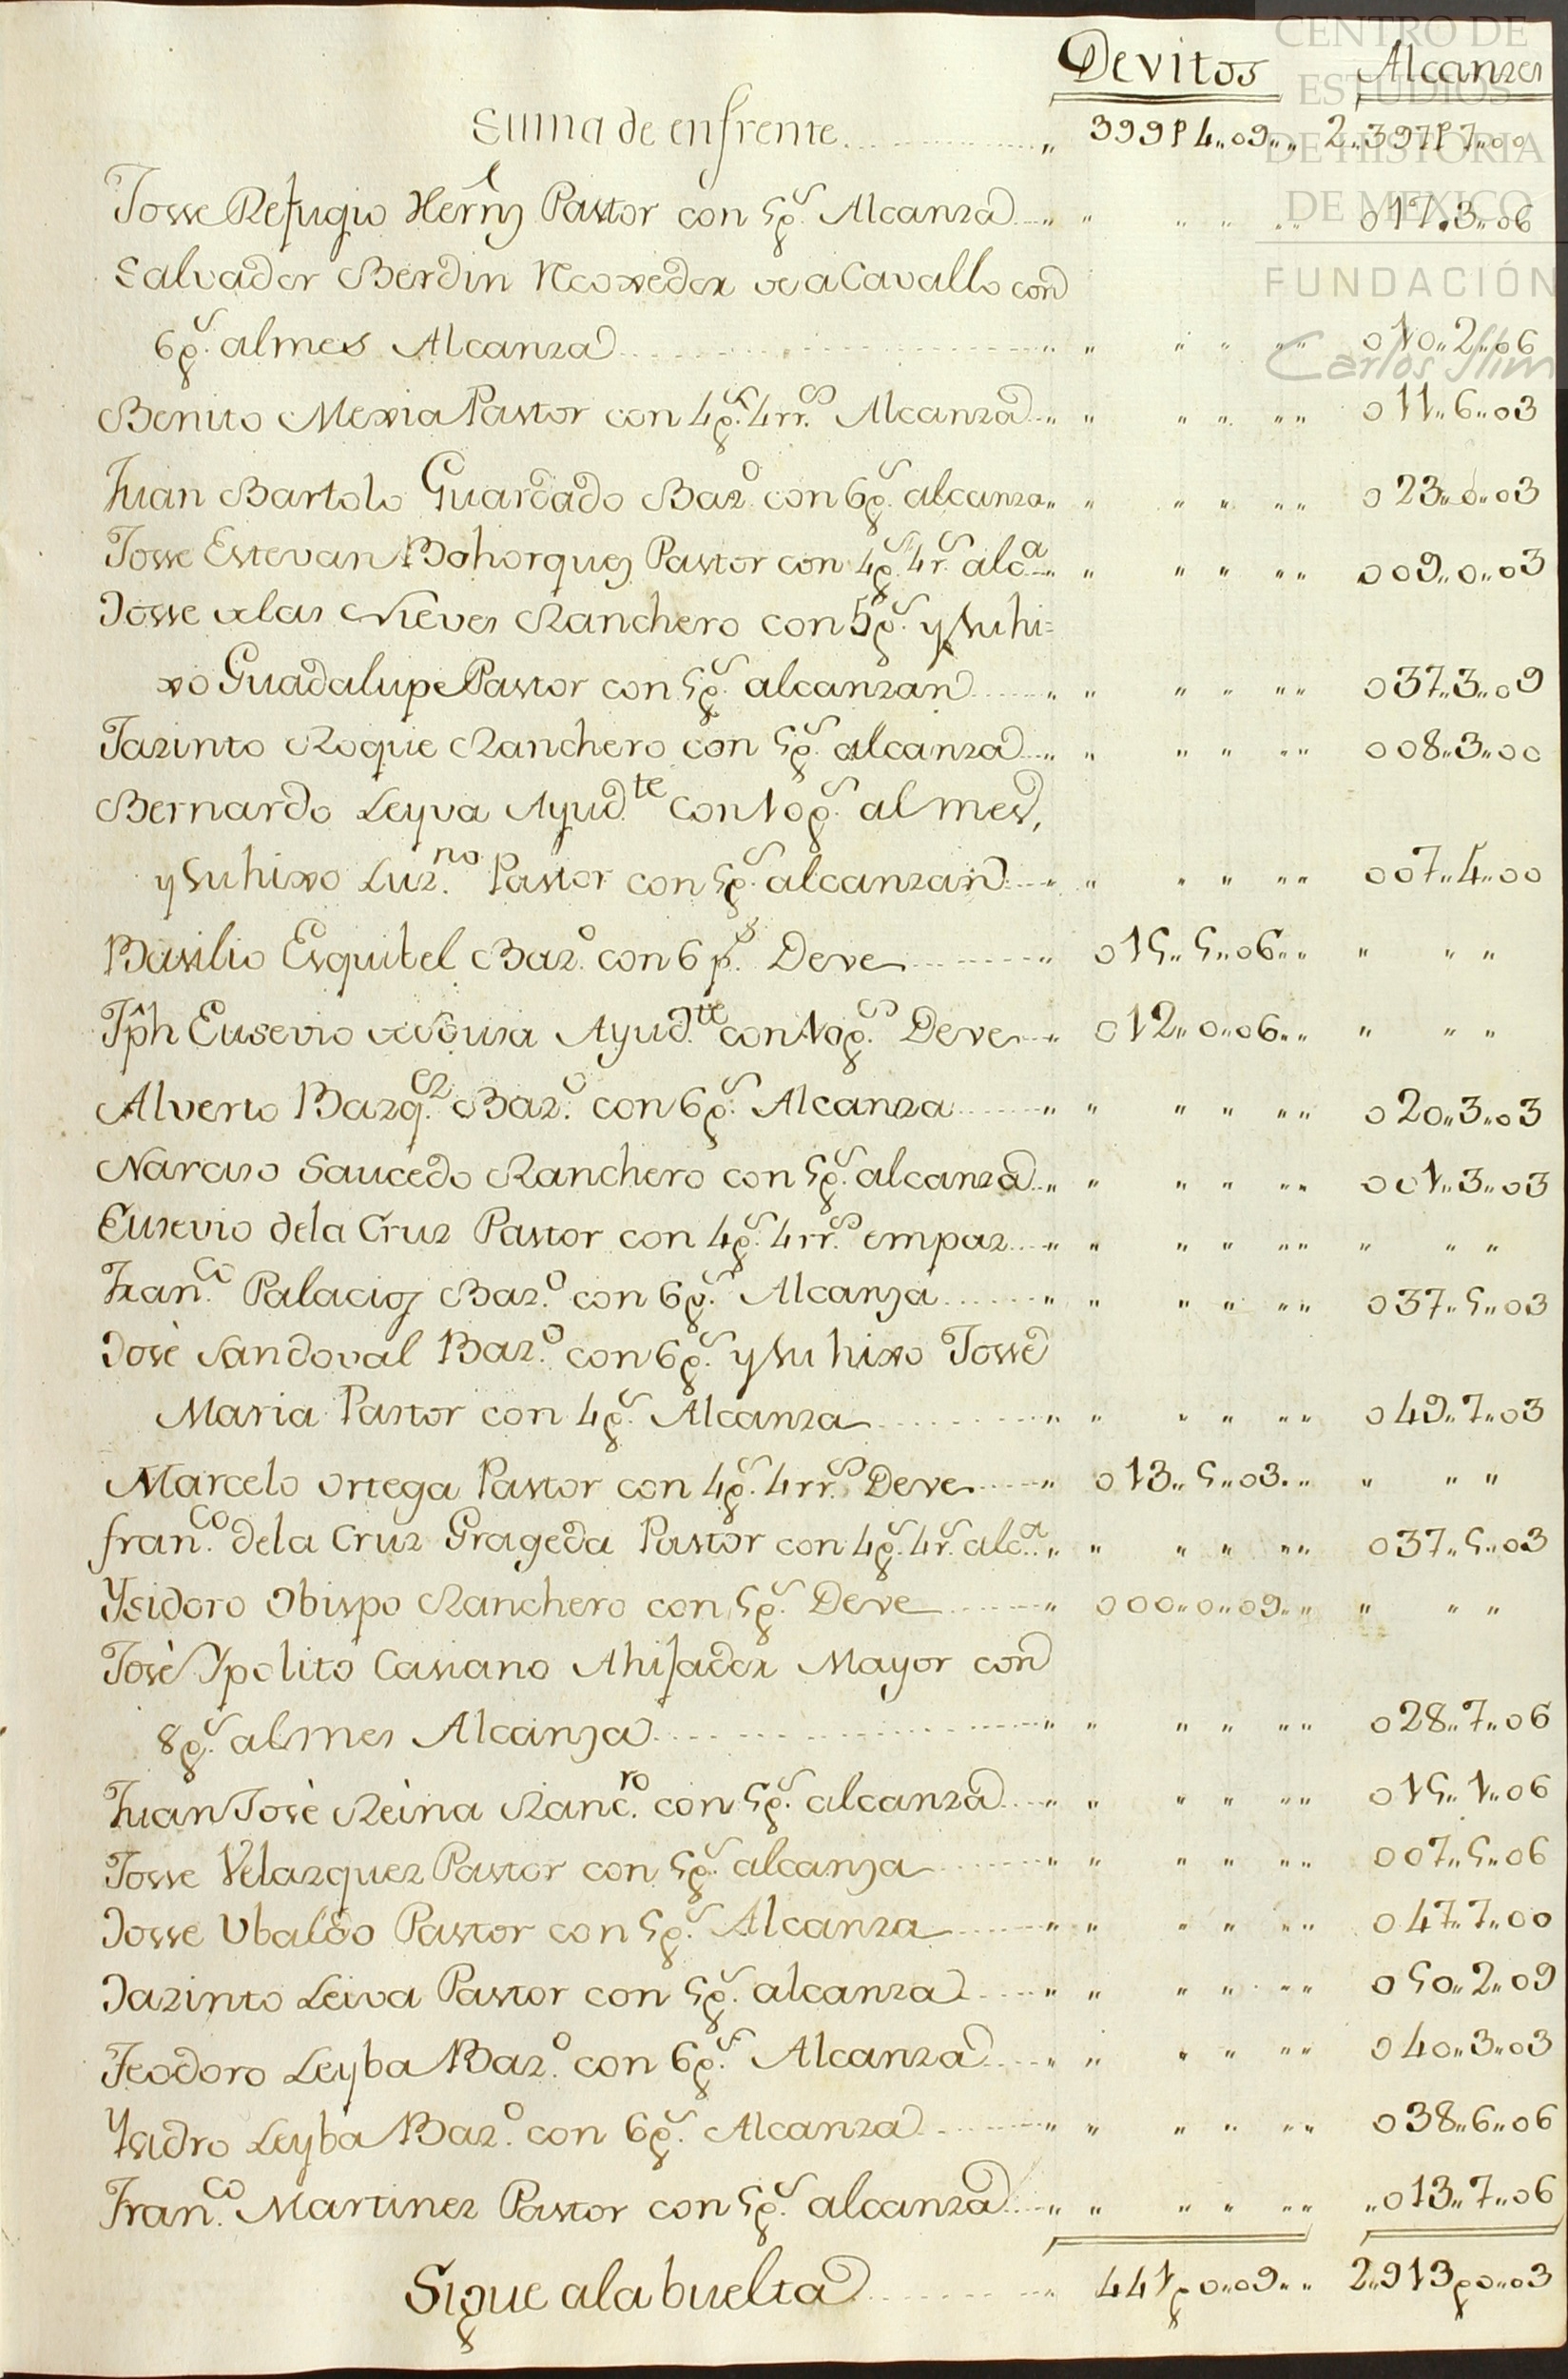 CENTRO DE
ESTUDIOS
DE HISTORIA
DE MEXICO
FUNDACIÓN
Carlos Slim
Devitos Alcanzes
Suma de enfrente ,, 399p4,,09,, 2,,397p7,,00
Josse Refugio Hernz Pastor con 5ps. Alcanza ,, ,, ,, ,, ,, 017,,3,,06
Salvador Berdin Recorredor de a Cavallo con
6ps. al mes Alcanza ,, ,, ,, ,, ,, 010,,2,,06
Benito Mexia Pastor con 4ps. 4rrs. Alcanza ,, ,, ,, ,, ,, 011,,6,,03
Juan Bartolo Guardado Bazo. con 6ps. alcanza ,, ,, ,, ,, ,, 023,,0,,03
Josse Estevan Bohorquez Pastor con 4ps. 4rs. alca. ,, ,, ,, ,, ,, 009,,0,,03
Josse delas Nieves Ranchero con 5ps. y su hi=
xo Guadalupe Pastor con 5ps. alcanzan ,, ,, ,, ,, ,, 037,,3,,09
Jazinto Roque Ranchero con 5ps. alcanza ,, ,, ,, ,, ,, 008,,3,,00
Bernardo Leyva Ayudte. con 10ps. al mes,
y su hixo Luzno. Pastor con 5ps. alcanzan ,, ,, ,, ,, ,, 007,,4,,00
Basilio Esquibel Bazo. con 6ps. Deve ,, 015,,5,,06,, ,, ,, ,,
Jph Eusevio de Sousa Ayudte. con 10ps. Deve ,, 012,,0,,06,, ,, ,, ,,
Alverto Bazqez. Bazo. con 6ps. Alcanza ,, ,, ,, ,, ,, 020,,3,,03
Narciso Saucedo Ranchero con 5ps. alcanza ,, ,, ,, ,, ,, 001,,3,,03
Eusevio dela Cruz Pastor con 4ps. 4rrs. empaz ,, ,, ,, ,, ,, ,, ,, ,,
Franco. Palacioz Bazo. con 6ps. Alcanza ,, ,, ,, ,, ,, 037,,5,,03
Josè Sandoval Bazo. con 6ps. y su hixo Josse
Maria Pastor con 4ps. Alcanza ,, ,, ,, ,, ,, 049,,7,,03
Marcelo Ortega Pastor con 4ps. 4rrs. Deve ,, 013,,5,,03,, ,, ,, ,,
franco. dela Cruz Grageda Pastor con 4ps. 4rs. alca. ,, ,, ,, ,, ,, 037,,5,,03
Ysidoro Obispo Ranchero con 5ps. Deve ,, 000,,0,,09,, ,, ,, ,,
Josè Ypolito Casiano Ahijador Mayor con
8ps. al mes Alcanza ,, ,, ,, ,, ,, 028,,7,,06
Juan Josè Rèina Rancro. con 5ps. alcanza ,, ,, ,, ,, ,, 015,,1,,06
Josse Velazquez Pastor con 5ps. alcanza ,, ,, ,, ,, ,, 007,,5,,06
Josse Ubaldo Pastor con 5ps. Alcanza ,, ,, ,, ,, ,, 047,,7,,00
Jazinto Leiva Pastor con 5ps. alcanza ,, ,, ,, ,, ,, 050,,2,,09
Teodoro Leyba Bazo. con 6ps. Alcanza ,, ,, ,, ,, ,, 040,,3,,03
Ysidro Leyba Bazo. con 6ps. Alcanza ,, ,, ,, ,, ,, 038,,6,,06
Franco. Martinez Pastor con 5ps. alcanza ,, ,, ,, ,, ,, ,,013,,7,,06
Sigue ala buelta ,, 441p0,,09,, 2,,913p0,,03